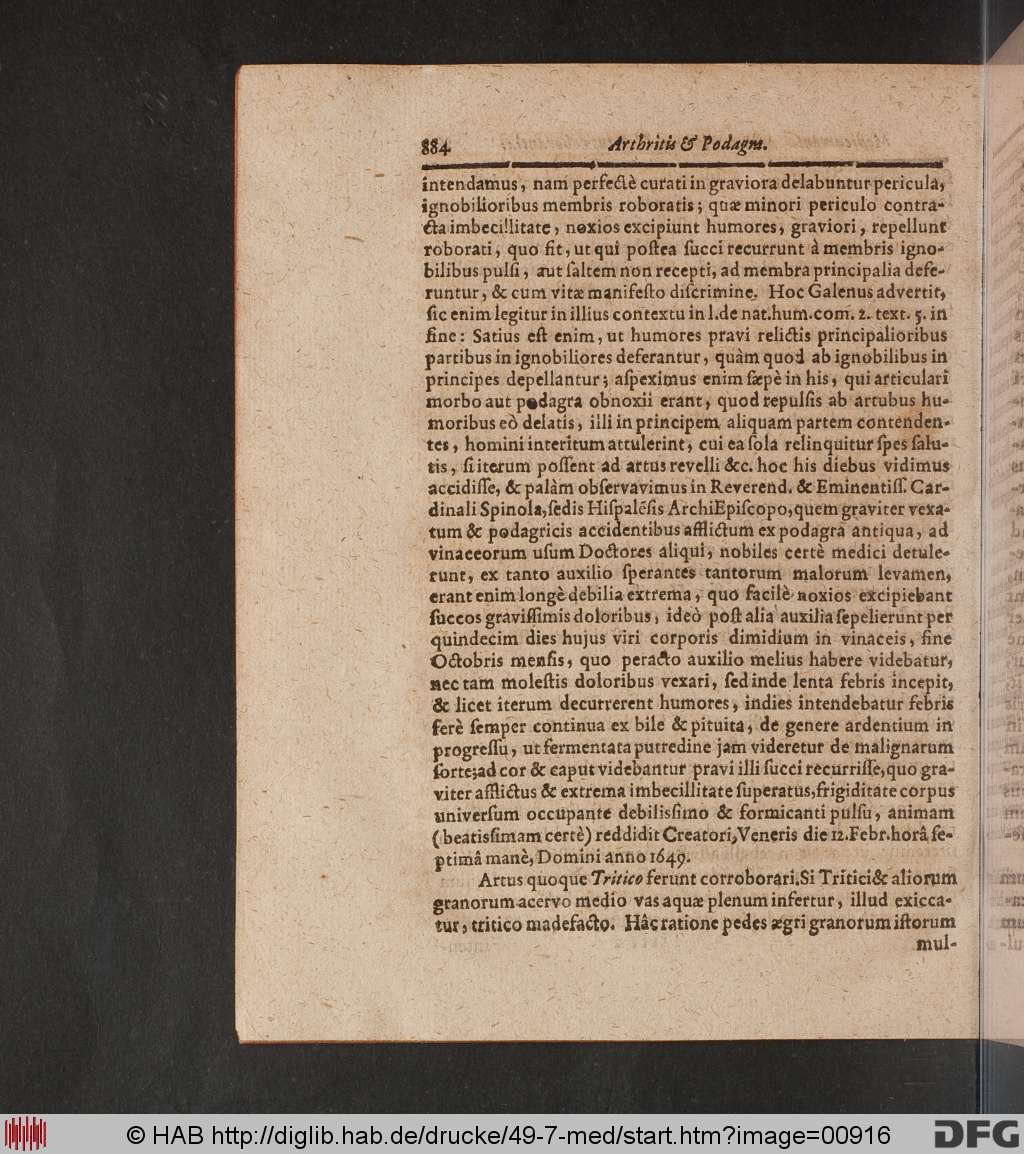 884 Arthritis & Podagra.
intendamus, nam perfectè curati in graviora delabuntur pericula,
ignobilioribus membris roboratis; quæ minori periculo contra-
cta imbecillitate, noxios excipiunt humores, graviori, repellunt
roborati, quo fit, ut qui poſtea ſucci recurrunt à membris igno-
bilibus pulſi, aut ſaltem non recepti, ad membra principalia defe-
runtur, & cum vitæ manifeſto diſcrimine. Hoc Galenus advertit,
ſic enim legitur in illius contextu in l. de nat. hum. com. 2. text. 5. in
fine: Satius eſt enim, ut humores pravi relictis principalioribus
partibus in ignobiliores deferantur, quàm quod ab ignobilibus in
principes depellantur; aſpeximus enim ſæpè in his, qui articulari
morbo aut podagra obnoxii erant, quod repulſis ab artubus hu-
moribus eò delatis, illi in principem aliquam partem contenden-
tes, homini interitum attulerint, cui ea ſola relinquitur ſpes ſalu-
tis, ſi iterum poſſent ad artus revelli &c. hoc his diebus vidimus
accidiſſe, & palàm obſervavimus in Reverend. & Eminentiſſ. Car-
dinali Spinola, ſedis Hiſpalẽſis ArchiEpiſcopo, quem graviter vexa-
tum & podagricis accidentibus afflictum ex podagra antiqua, ad
vinaceorum uſum Doctores aliqui, nobiles certè medici detule-
runt, ex tanto auxilio ſperantes tantorum malorum levamen,
erant enim longè debilia extrema, quo facilè noxios excipiebant
ſuccos graviſſimis doloribus, ideò poſt alia auxilia ſepelierunt per
quindecim dies hujus viri corporis dimidium in vinaceis, fine
Octobris menſis, quo peracto auxilio melius habere videbatur,
nec tam moleſtis doloribus vexari, ſed inde lenta febris incepit,
& licet iterum decurrerent humores, indies intendebatur febris
ferè ſemper continua ex bile & pituita, de genere ardentium in
progreſſu, ut fermentata putredine jam videretur de malignarum
ſorte; ad cor & caput videbantur pravi illi ſucci recurriſſe, quo gra-
viter afflictus & extrema imbecillitate ſuperatus, frigiditate corpus
univerſum occupante debilisſimo & formicanti pulſu, animam
(beatisſimam certè) reddidit Creatori, Veneris die 12. Febr. horâ ſe-
ptimâ manè, Domini anno 1649.
Artus quoque Tritico ferunt corroborari. Si Tritici & aliorum
granorum acervo medio vas aquæ plenum infertur, illud exicca-
tur, tritico madefacto. Hâc ratione pedes ægri granorum iſtorum
mul-
© HAB http://diglib.hab.de/drucke/49-7-med/start.htm?image=00916
DFG